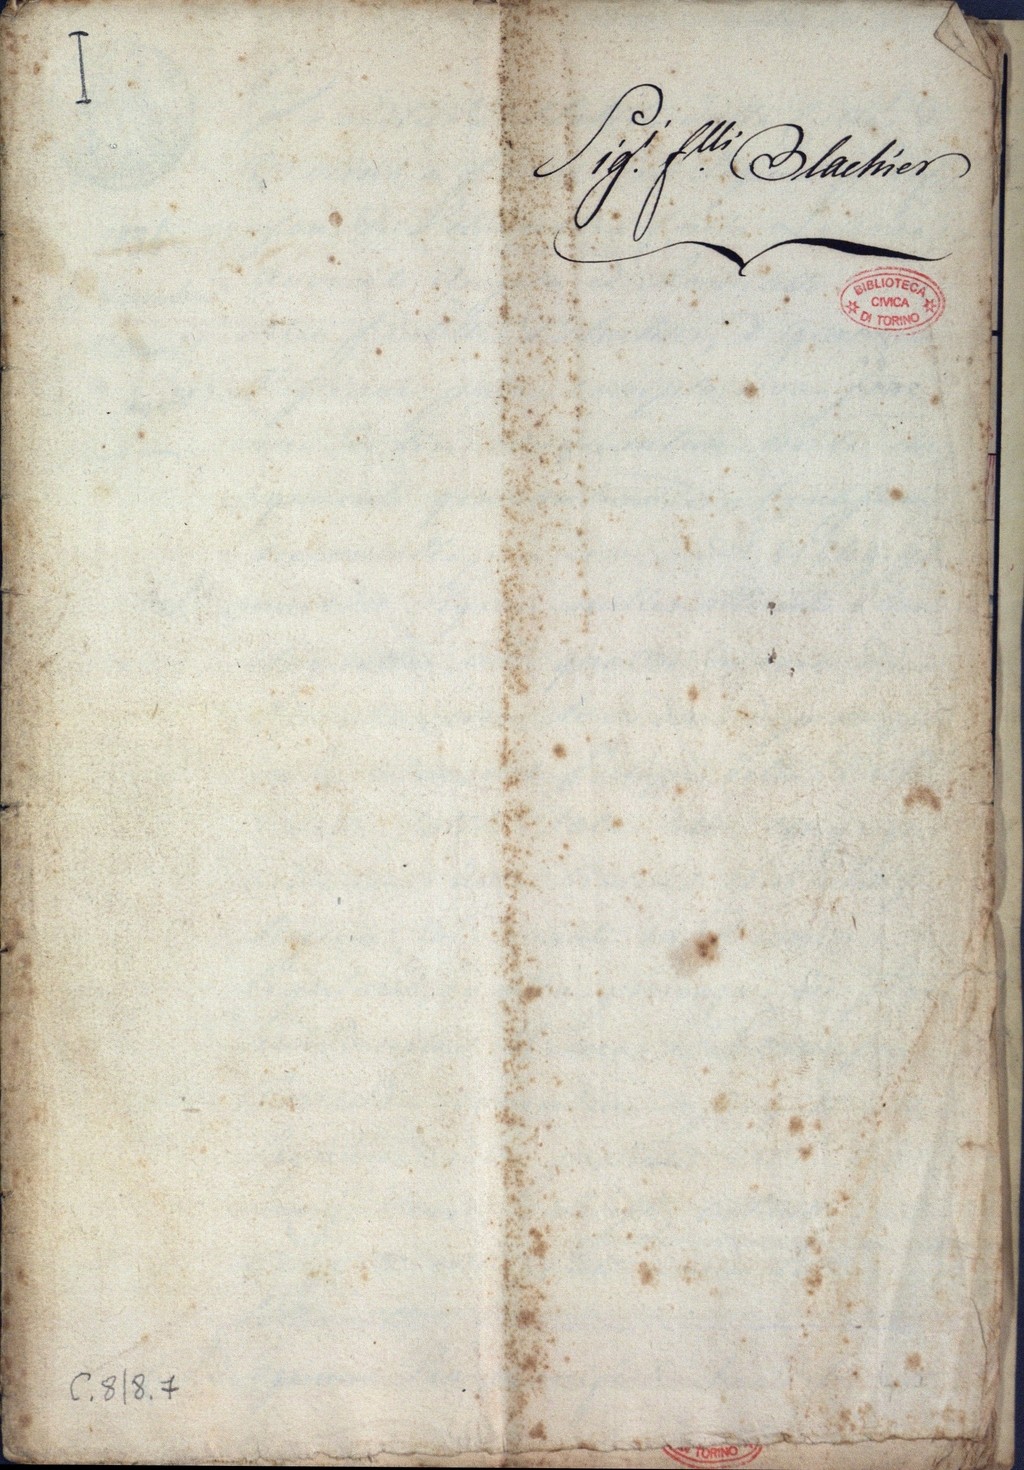 I
Sig.i f.lli Blachier
BIBLIOTECA
CIVICA
DI TORINO
C.8/8.7
DI TORINO